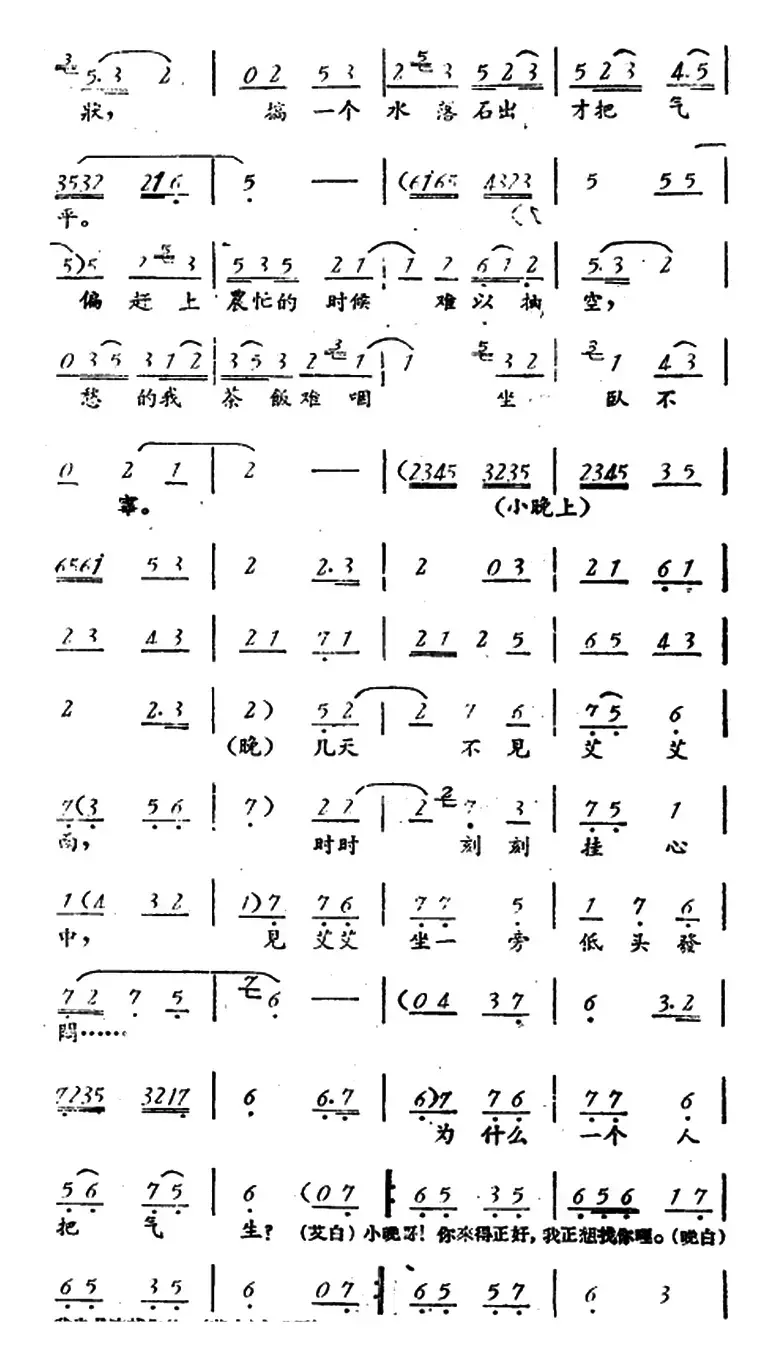 5.3 2 | 0 2 5 3 | 2 3 5 2 3 | 5 2 3 4.5
狀， 搞一个 水落石出 才把 气
3532 216 | 5 — | (6i65 4323 | 5 5 5
平。
5)5 2 3 | 5 3 5 2 1 | 1 2 6 1 2 | 5.3 2
偏赶上 農忙的时候 难以抽空，
0 3 5 3 1 2 | 3 5 3 2 1 | 1 3 2 | 1 4 3
愁的我 茶飯难咽 坐 臥不
0 2 1 | 2 — | (2345 3235 | 2345 3 5
寧。 (小晚上)
656i 5 3 | 2 2.3 | 2 0 3 | 2 1 6 1
2 3 4 3 | 2 1 7 1 | 2 1 2 5 | 6 5 4 3
2 2.3 | 2) 5 2 | 2 7 6 | 7 5 6
(晚) 几天 不見 艾艾
7 (3 5 6 | 7) 2 2 | 2 7 3 | 7 5 1
面， 时时 刻刻 挂心
1 (4 3 2 | 1) 7 7 6 | 7 7 5 | 1 7 6
中， 見艾艾 坐一旁 低头發
7 2 7 5 | 6 — | (0 4 3 7 | 6 3.2
悶……
7235 3217 | 6 6.7 | 6)7 7 6 | 7 7 6
为什么 一个人
5 6 7 5 | 6 (0 7 | 6 5 3 5 | 6 5 6 1 7
把气 生？ (艾白) 小晚哥！你來得正好，我正想找你哩。(晚白)
6 5 3 5 | 6 0 7 | 6 5 5 7 | 6 3